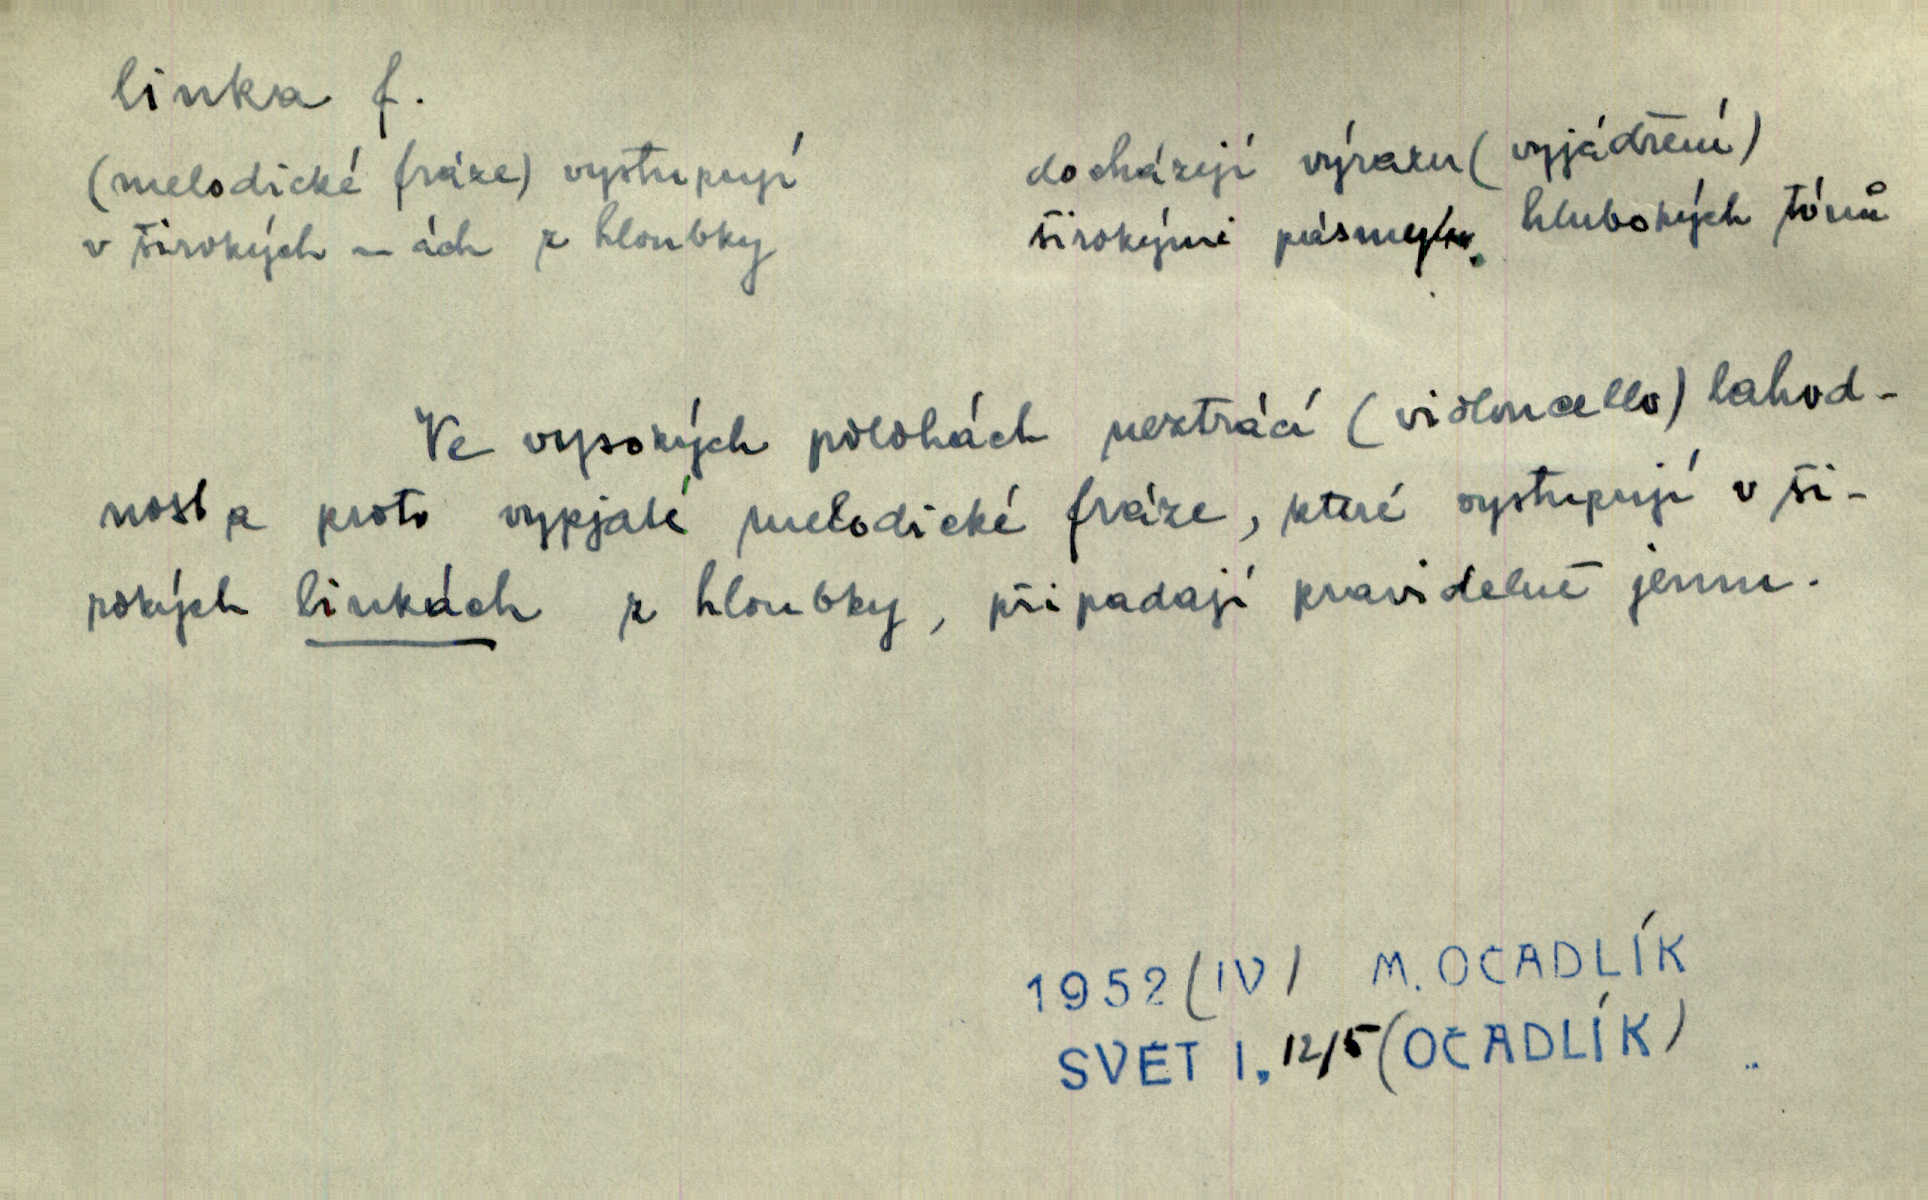 linka f.
(melodické fráze) vystupují
v širokých – ách z hloubky
docházejí výrazu (vyjádření)
širokými pásmy hlubokých tónů
Ve vysokých polohách neztrácí (violoncello) lahod-
nost a proto vypjaté melodické fráze, které vystupují v ši-
rokých linkách z hloubky, připadají pravidelně jemu.
1952 (IV) M. OČADLÍK
SVĚT I. 12/5 (OČADLÍK)